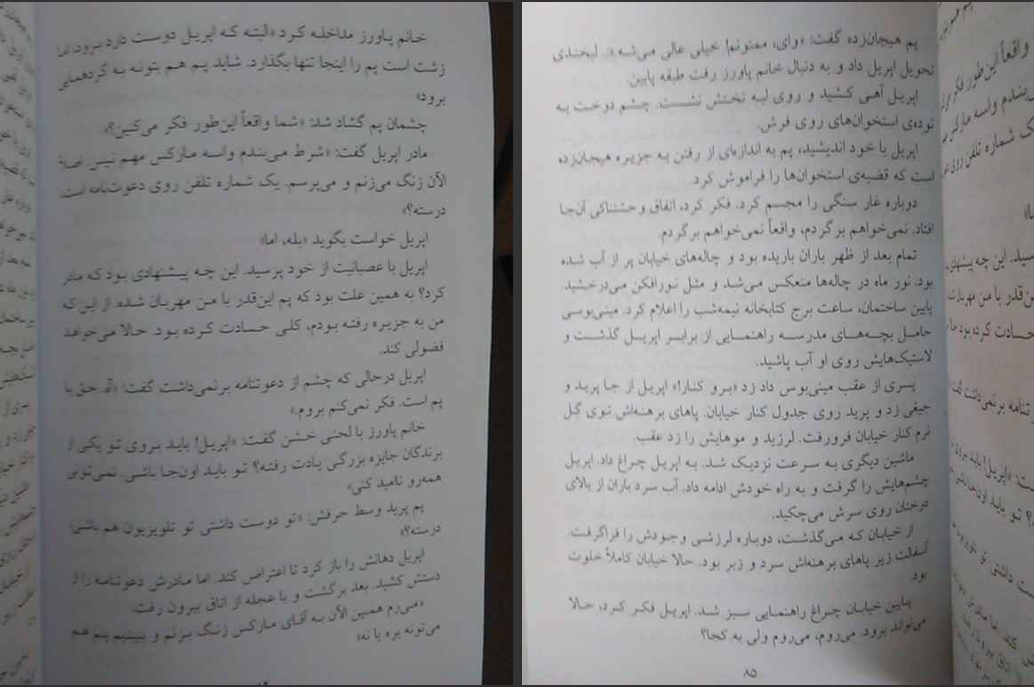 خانم پاورز مداخله کرد «البته که اپریل دوست دارد برود، اما
زشت است پم را اینجا تنها بگذارد. شاید پم هم بتونه به گردهمایی
برود»
چشمان پم گشاد شد: «شما واقعاً این‌طور فکر می‌کنین؟»
مادر اپریل گفت: «شرط می‌بندم واسه مارکس مهم نیس. اصلاً
الآن زنگ می‌زنم و می‌پرسم. یک شماره تلفن روی دعوت‌نامه است.
درسته؟»
اپریل خواست بگوید «بله، اما»
اپریل با عصبانیت از خود پرسید. این چه پیشنهادی بود که مادر
کرد؟ به همین علت بود که پم این‌قدر با من مهربان شده. از این‌که
من به جزیره رفته بودم، کلی حسادت کرده بود. حالا می‌خواهد
فضولی کند.
اپریل درحالی که چشم از دعوتنامه برنمی‌داشت گفت: «آه. حق با
پم است. فکر نمی‌کنم بروم.»
خانم پاورز با لحنی خشن گفت: «اپریل! باید بروی تو یکی از
برندگان جایزه بزرگی یادت رفته؟ تو باید اون‌جا باشی. نمی‌تونی
همه‌رو ناامید کنی»
پم پرید وسط حرفش: «تو دوست داشتی تو تلویزیون هم باشی،
درسته؟»
اپریل دهانش را باز کرد تا اعتراض کند. اما مادرش دعوتنامه را از
دستش کشید. بعد برگشت و با عجله از اتاق بیرون رفت.
«می‌رم همین الآن به آقای مارکس زنگ بزنم و ببینیم پم هم
می‌تونه بره یا نه»
پم هیجان‌زده گفت: «وای، ممنونم! خیلی عالی می‌شه». لبخندی
تحویل اپریل داد و به دنبال خانم پاورز رفت طبقه پایین.
اپریل آهی کشید و روی لبه تختش نشست. چشم دوخت به
توده‌ی استخوان‌های روی فرش.
اپریل با خود اندیشید، پم به اندازه‌ای از رفتن به جزیره هیجان‌زده
است که قضیه‌ی استخوان‌ها را فراموش کرد.
دوباره غار سنگی را مجسم کرد. فکر کرد، اتفاق وحشتناکی آن‌جا
افتاد. نمی‌خواهم برگردم، واقعاً نمی‌خواهم برگردم.
تمام بعد از ظهر باران باریده بود و چاله‌های خیابان پر از آب شده
بود. نور ماه در چاله‌ها منعکس می‌شد و مثل نورافکن می‌درخشید.
پایین ساختمان، ساعت برج کتابخانه نیمه‌شب را اعلام کرد. مینی‌بوسی
حامل بچه‌های مدرسه راهنمایی از برابر اپریل گذشت و
لاستیک‌هایش روی او آب پاشید.
پسری از عقب مینی‌بوس داد زد «برو کنار!» اپریل از جا پرید و
جیغی زد و پرید روی جدول کنار خیابان. پاهای برهنه‌اش توی گل
نرم کنار خیابان فرورفت. لرزید و موهایش را زد عقب.
ماشین دیگری به سرعت نزدیک شد. به اپریل چراغ داد. اپریل
چشم‌هایش را گرفت و به راه خودش ادامه داد. آب سرد باران از بالای
درختان روی سرش می‌چکید.
از خیابان که می‌گذشت، دوباره لرزشی وجودش را فراگرفت.
آسفالت زیر پاهای برهنه‌اش سرد و زبر بود. حالا خیابان کاملاً خلوت
بود.
پایین خیابان چراغ راهنمایی سبز شد. اپریل فکر کرد، حالا
می‌تواند برود. می‌روم، می‌روم ولی به کجا؟
۸۵